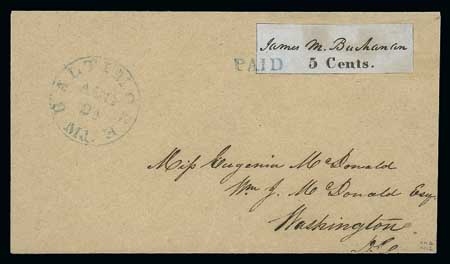 James M. Buchanan
PAID 5 Cents.
BALTIMORE Md.
Miss Eugenia McDonald
Wm J. McDonald Esq.
Washington
D.C.